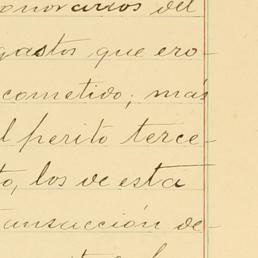 onorarios del
gastos que ero-
cometido; más
l perito terce-
to, los de esta
ansacción de-